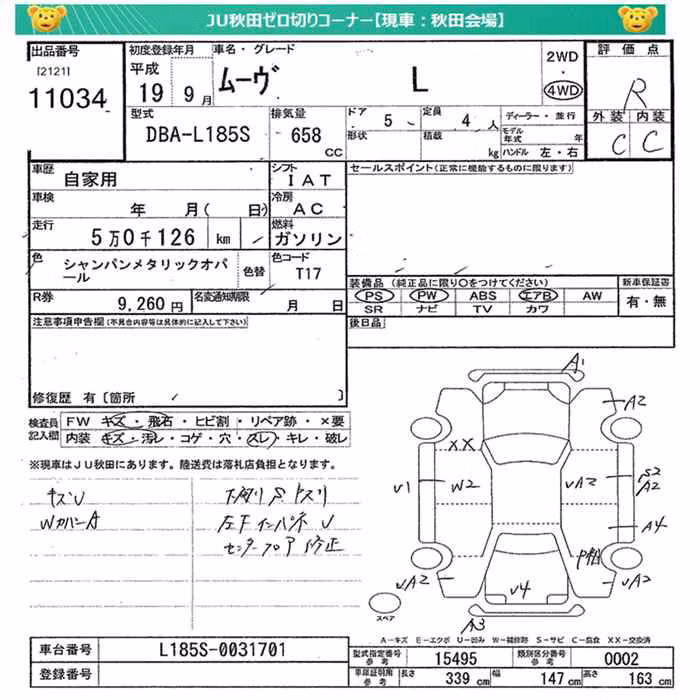 JU秋田ゼロ切りコーナー【現車：秋田会場】
出品番号 初度登録年月 車名・グレード 2WD・4WD 評価点
[2121] 11034 平成 19 9月 ムーヴ L R
型式 排気量 ドア 5 定員 4人 ディーラー・並行 外装 内装
DBA-L185S 658 CC 形状 積載 kg モデル年式 年 C C
ハンドル 左・右
車歴 自家用 シフト IAT セールスポイント(正常に機能するものに限ります)
車検 年 月( 日) 冷房 AC
走行 5万0千126 km 燃料 ガソリン
色 シャンパンメタリックオパール 色替 色コード T17
装備品 (純正品に限り○をつけてください) 新車保証書
PS PW ABS エアB AW 有・無
SR ナビ TV カワ
R券 9,260円 名変通知期限 月 日
後日品
注意事項申告欄(不具合内容等は具体的に記入して下さい)
修復歴 有〔箇所 〕
検査員記入欄 FW キズ・飛石・ヒビ割・リペア跡・×要
内装 キズ・汚レ・コゲ・穴・スレ・キレ・破レ
※現車はJU秋田にあります。陸送費は落札店負担となります。
キズU
WカバーA
下廻りSキズリ
左FインパネU
センターフロア修正
A1
A2
XX
U1 W2 UA2 S2 A2
A4
UA2 U4 UA2
スペア A3
A－キズ E－エクボ U－凹み W－補修跡 S－サビ C－腐食 XX－交換済
車台番号 L185S-0031701
型式指定番号 参考 15495 類別区分番号 参考 0002
登録番号
車庫証明用 参考 長さ 339 cm 幅 147 cm 高さ 163 cm